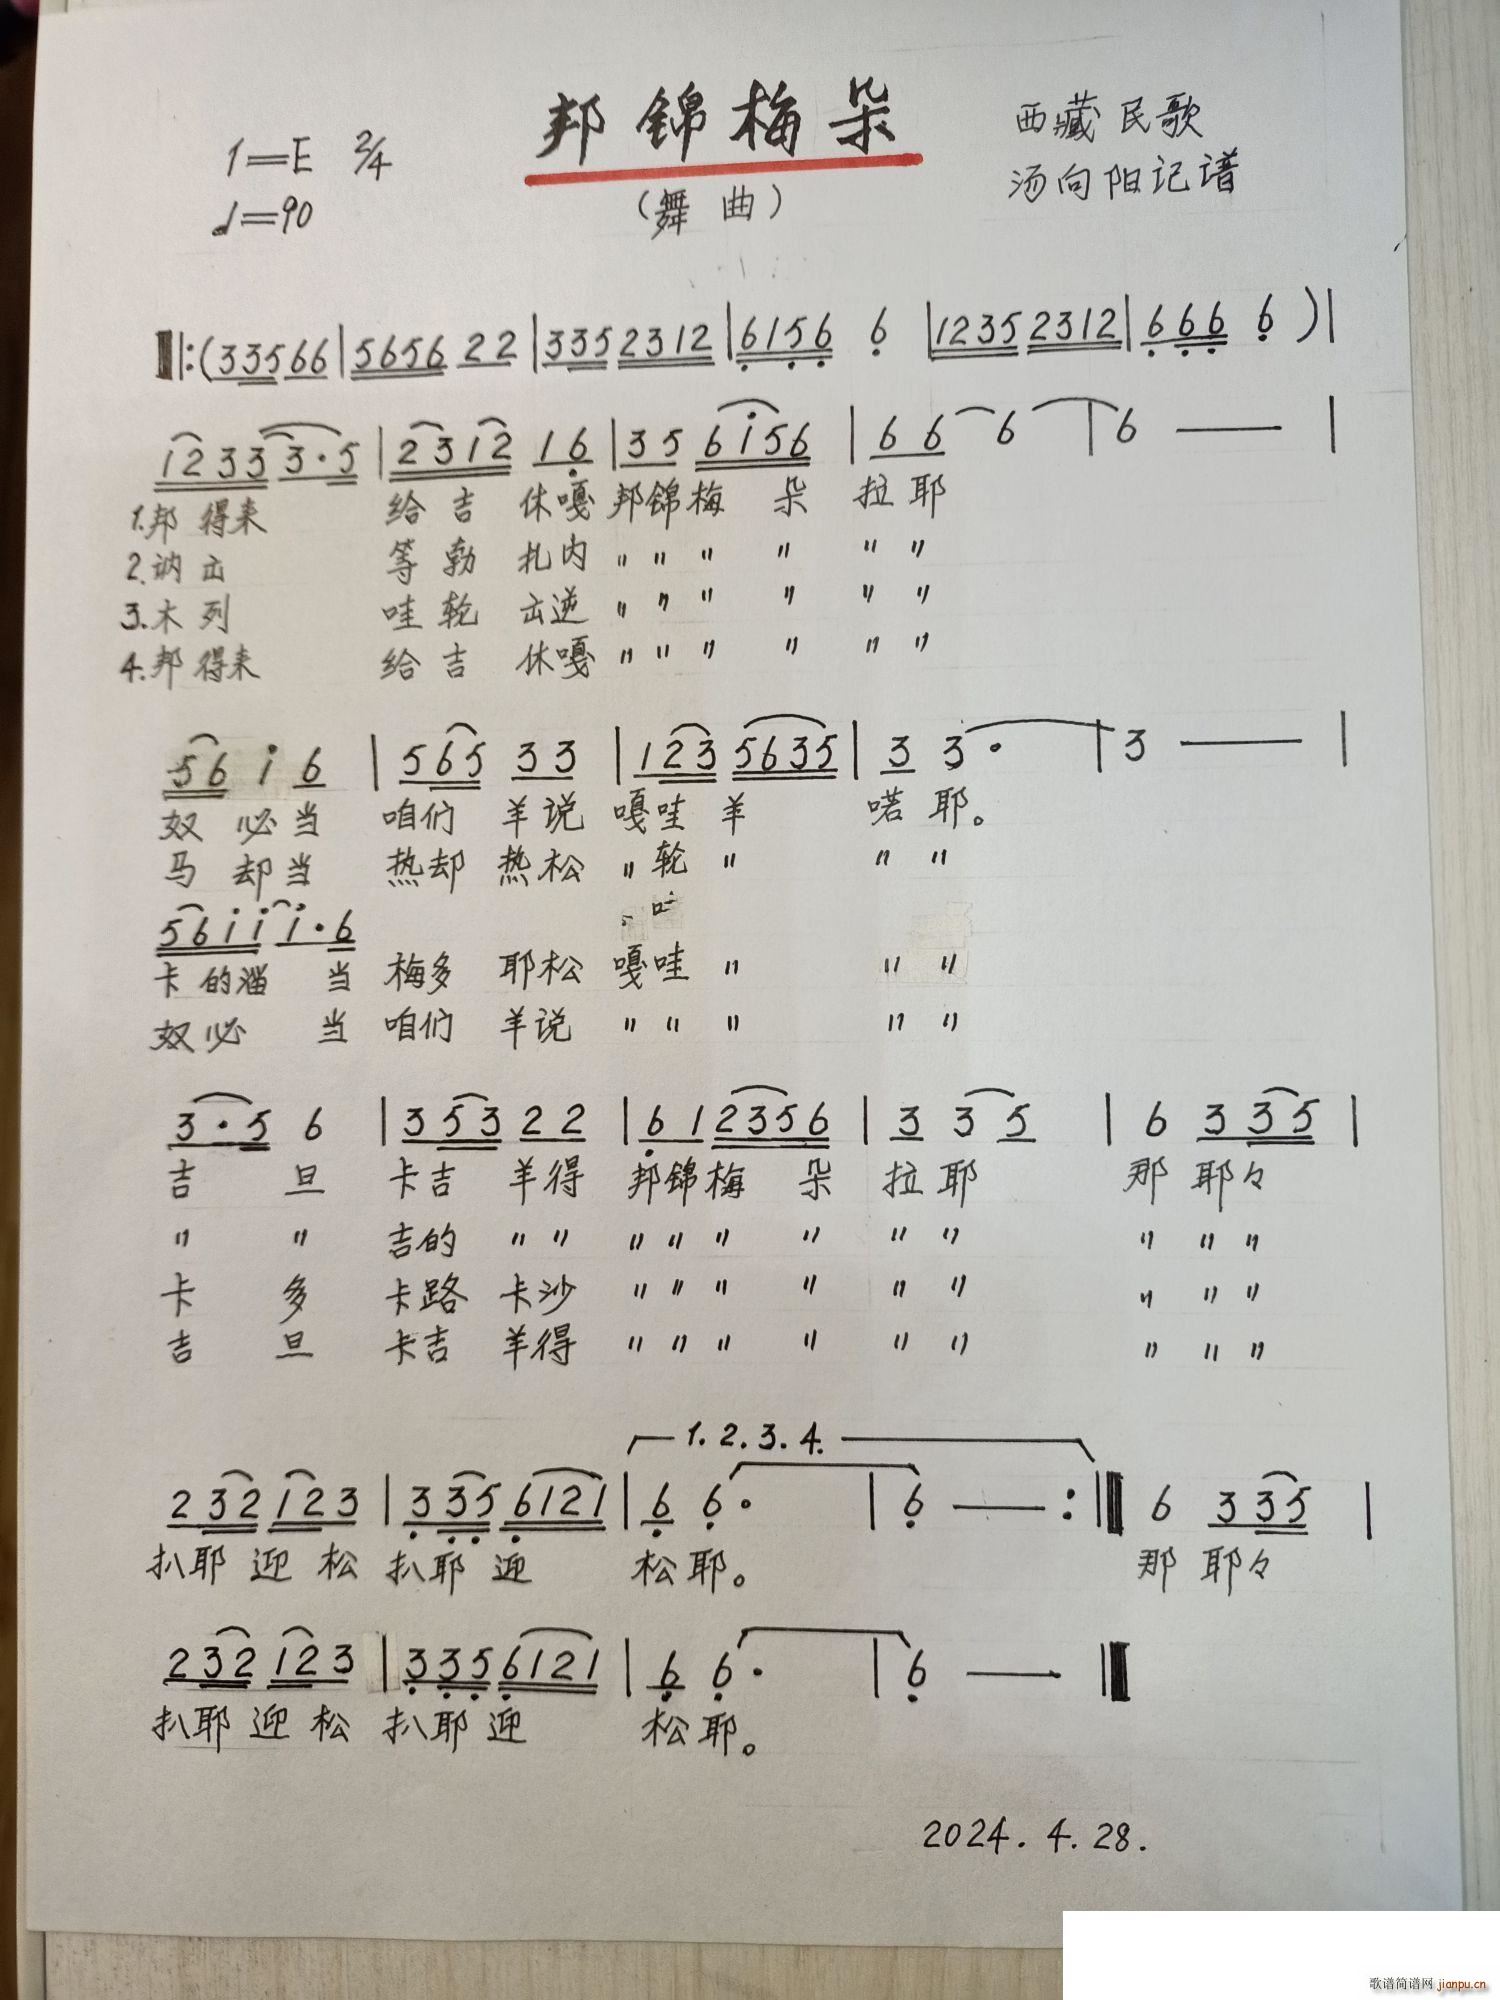 邦锦梅朵
(舞曲)
1=E 2/4
♩=90
西藏民歌
汤向阳记谱
‖:(33566|5656 22|335 2312|6156 6|1235 2312|666 6)|
1233 3·5|2312 16|35 6i56|66 6|6 —|
1.邦得来 给吉 休嘎 邦锦梅 朵 拉耶
2.讷 等勃 扎内 〃〃〃 〃 〃〃
3.木列 哇轮 逆 〃〃〃 〃 〃〃
4.邦得来 给吉 休嘎 〃〃〃 〃 〃〃
56 i 6|565 33|123 5635|3 3·|3 —|
奴 必当 咱们 羊说 嘎哇 羊 喏 耶。
马 却当 热却 热松 〃轮 〃 〃 〃
56ii i·6
卡的淄 当 梅多 耶松 嘎哇 〃 〃 〃
奴必 当 咱们 羊说 〃〃 〃 〃 〃
3·5 6|353 22|61 2356|3 3 5|6 335|
吉 旦 卡吉 羊得 邦锦梅 朵 拉耶 那 耶々
〃 〃 吉的 〃〃 〃〃〃 〃 〃〃 〃 〃〃
卡 多 卡路 卡沙 〃〃〃 〃 〃〃 〃 〃〃
吉 旦 卡吉 羊得 〃〃〃 〃 〃〃 〃 〃〃
1.2.3.4.
232 123|335 6121|6 6·|6 —:‖6 335|
扒耶 迎 松 扒耶 迎 松耶。 那 耶々
232 123|335 6121|6 6·|6 —‖
扒耶 迎 松 扒耶 迎 松耶。
2024.4.28.
歌谱简谱网 jianpu.cn